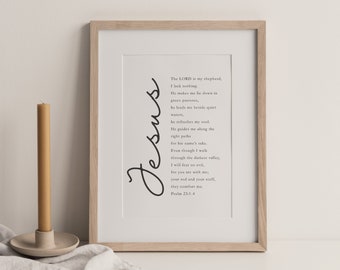 Jesus
The LORD is my shepherd,
I lack nothing.
He makes me lie down in
green pastures,
he leads me beside quiet
waters,
he refreshes my soul.
He guides me along the
right paths
for his name's sake.
Even though I walk
through the darkest valley,
I will fear no evil,
for you are with me;
your rod and your staff,
they comfort me.
Psalm 23:1-4